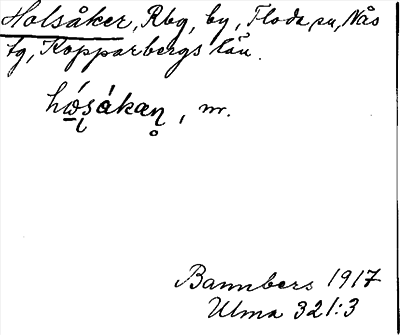 Holsåker, Rbg, by, Floda sn, Nås
tg, Kopparbergs län.
hώʂákaṇ, nr.
Bannbers 1917
Ulma 321:3